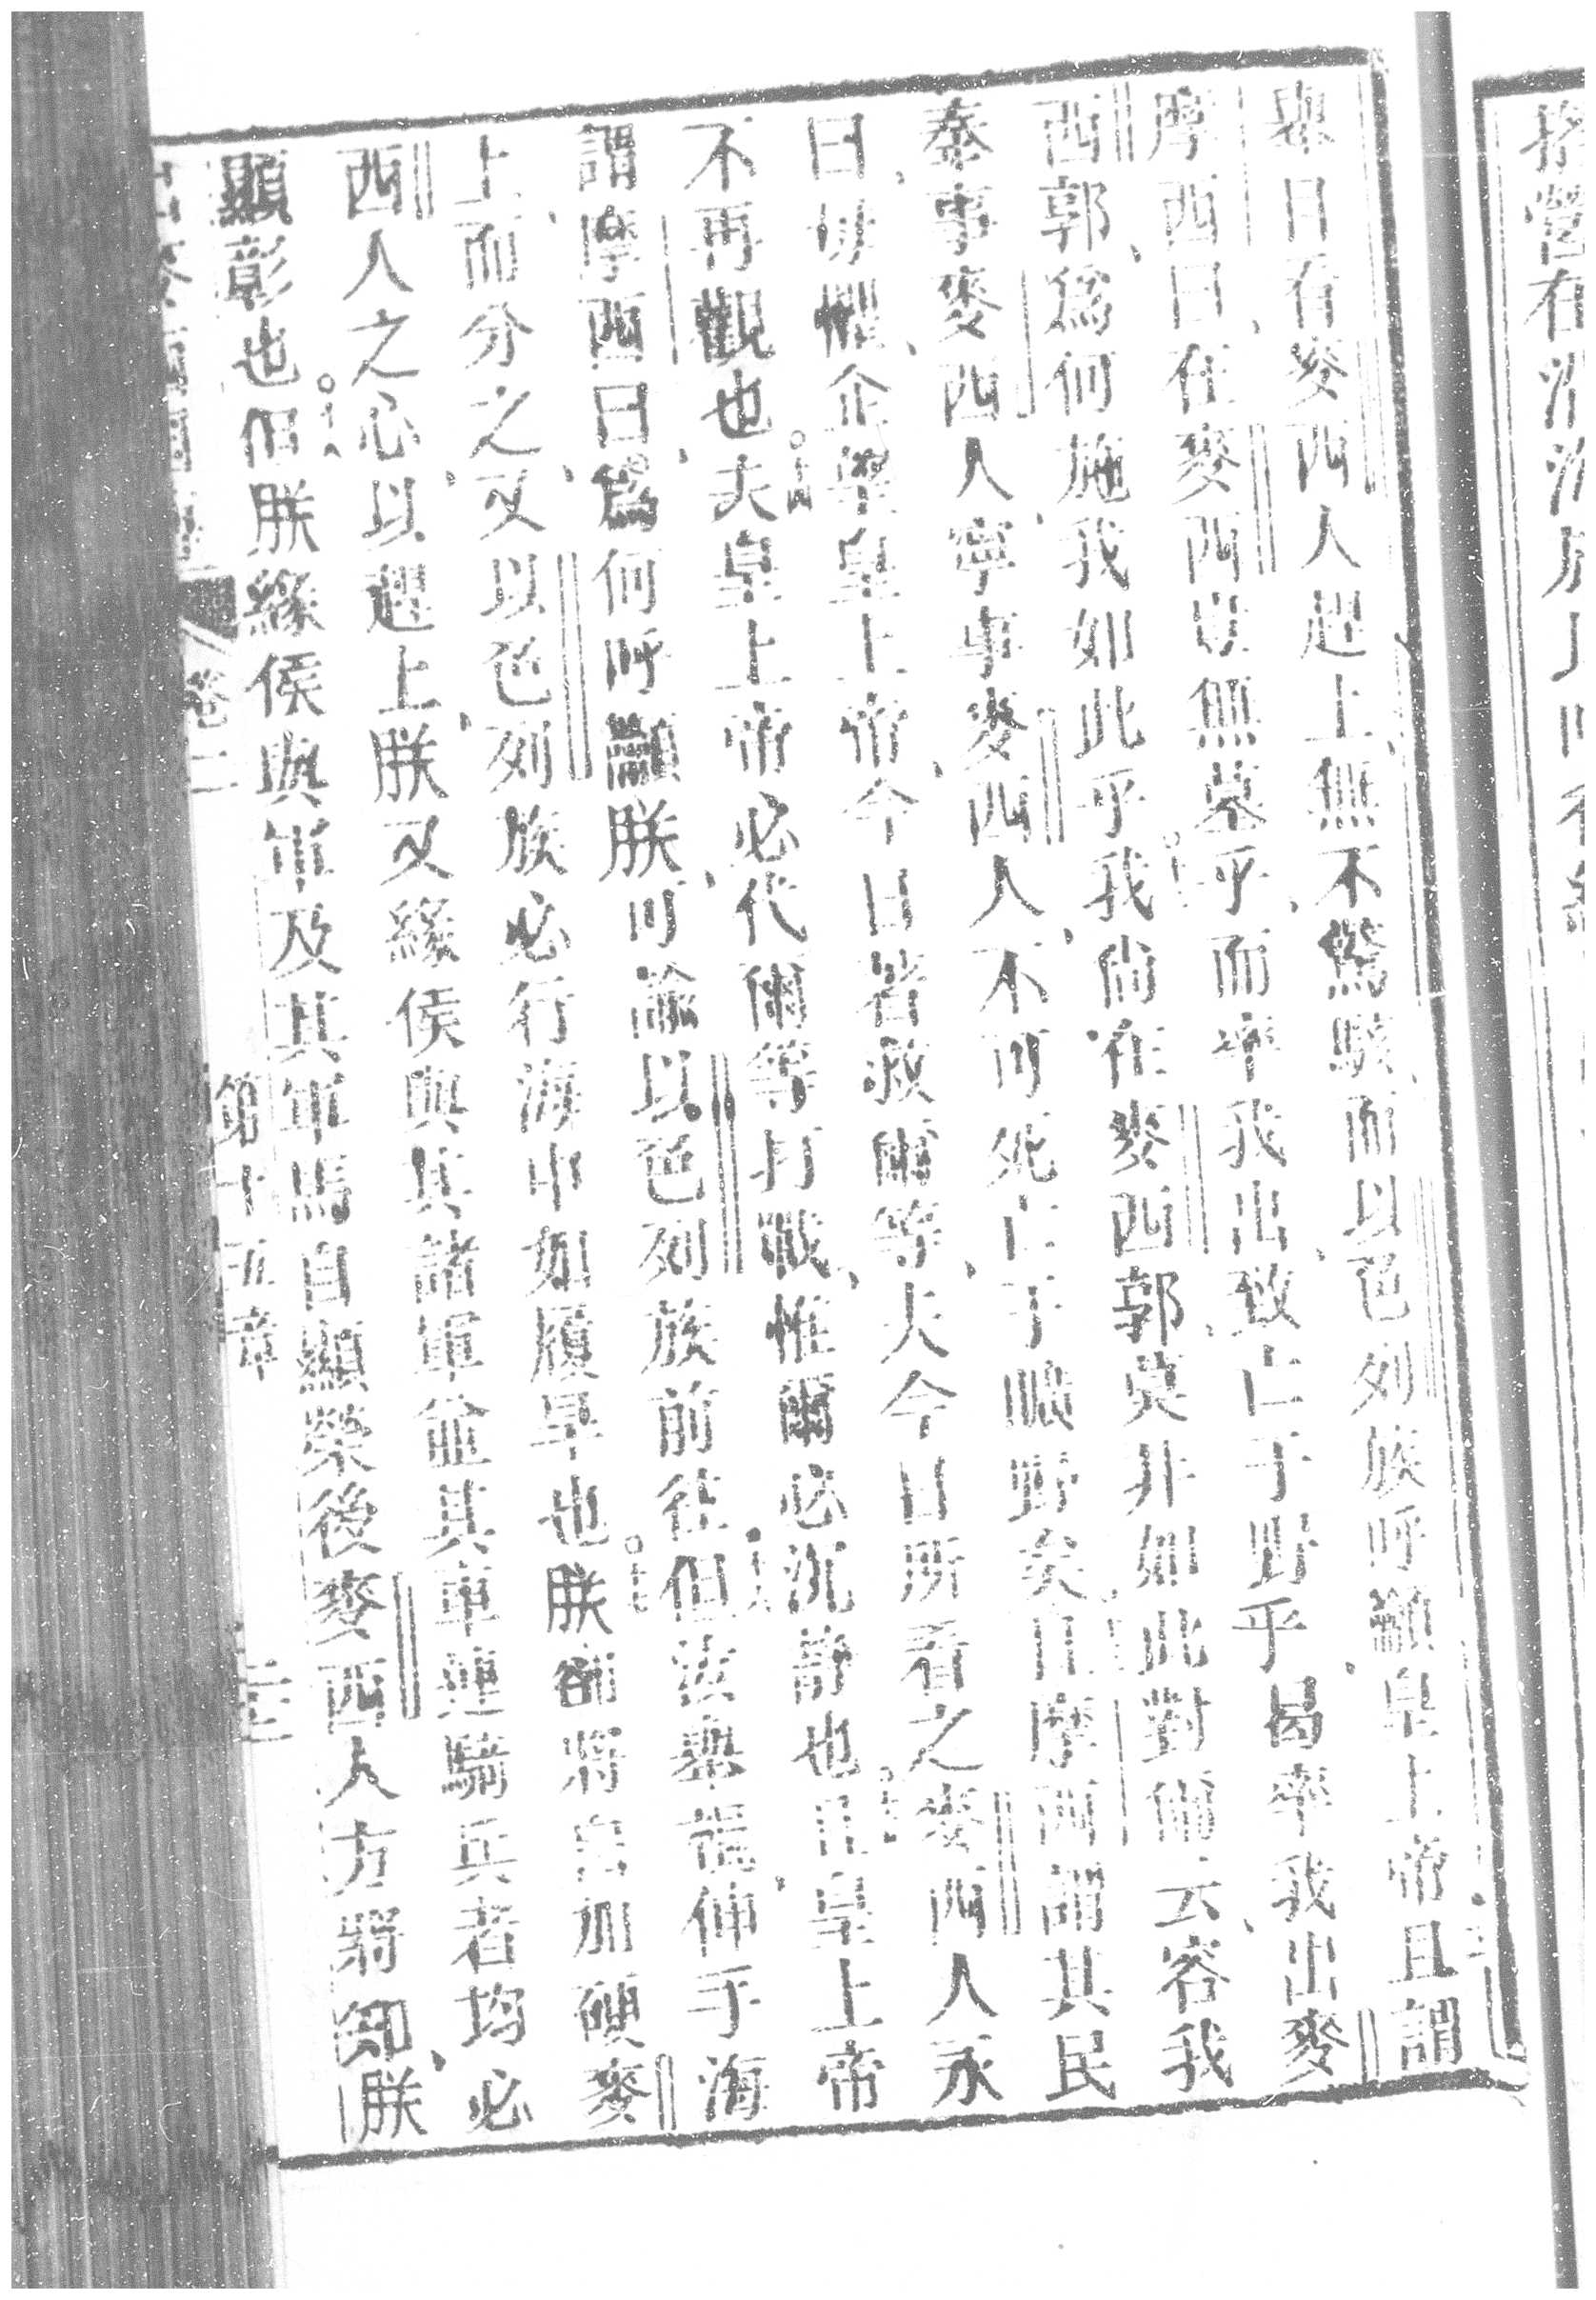 衆目看麥西人趕上無不驚駭而以色列族呼籲皇上帝且謂
摩西曰在麥西豈無墓乎而率我出致亡于野乎曷率我出麥
西郭爲何施我如此乎我尙在麥西郭莫非如此對爾云容我
奉事麥西人寧事麥西人不可死亡于曠野矣且摩西謂其民
曰毋懼企望皇上帝今日者救爾等夫今日所看之麥西人永
不再觀也夫皇上帝必代爾等打戰惟爾必沉靜也且皇上帝
謂摩西曰爲何呼籲朕可諭以色列族前往但爾舉杖伸手海
上而分之又以色列族必行海中如履旱也朕卻將言加硬麥
西人之心以趕上朕又緣侯與其諸軍並其車連騎兵者均必
顯彰也但朕緣侯與軍及其軍馬自顯榮後麥西人方將知朕
卷二
第十五章